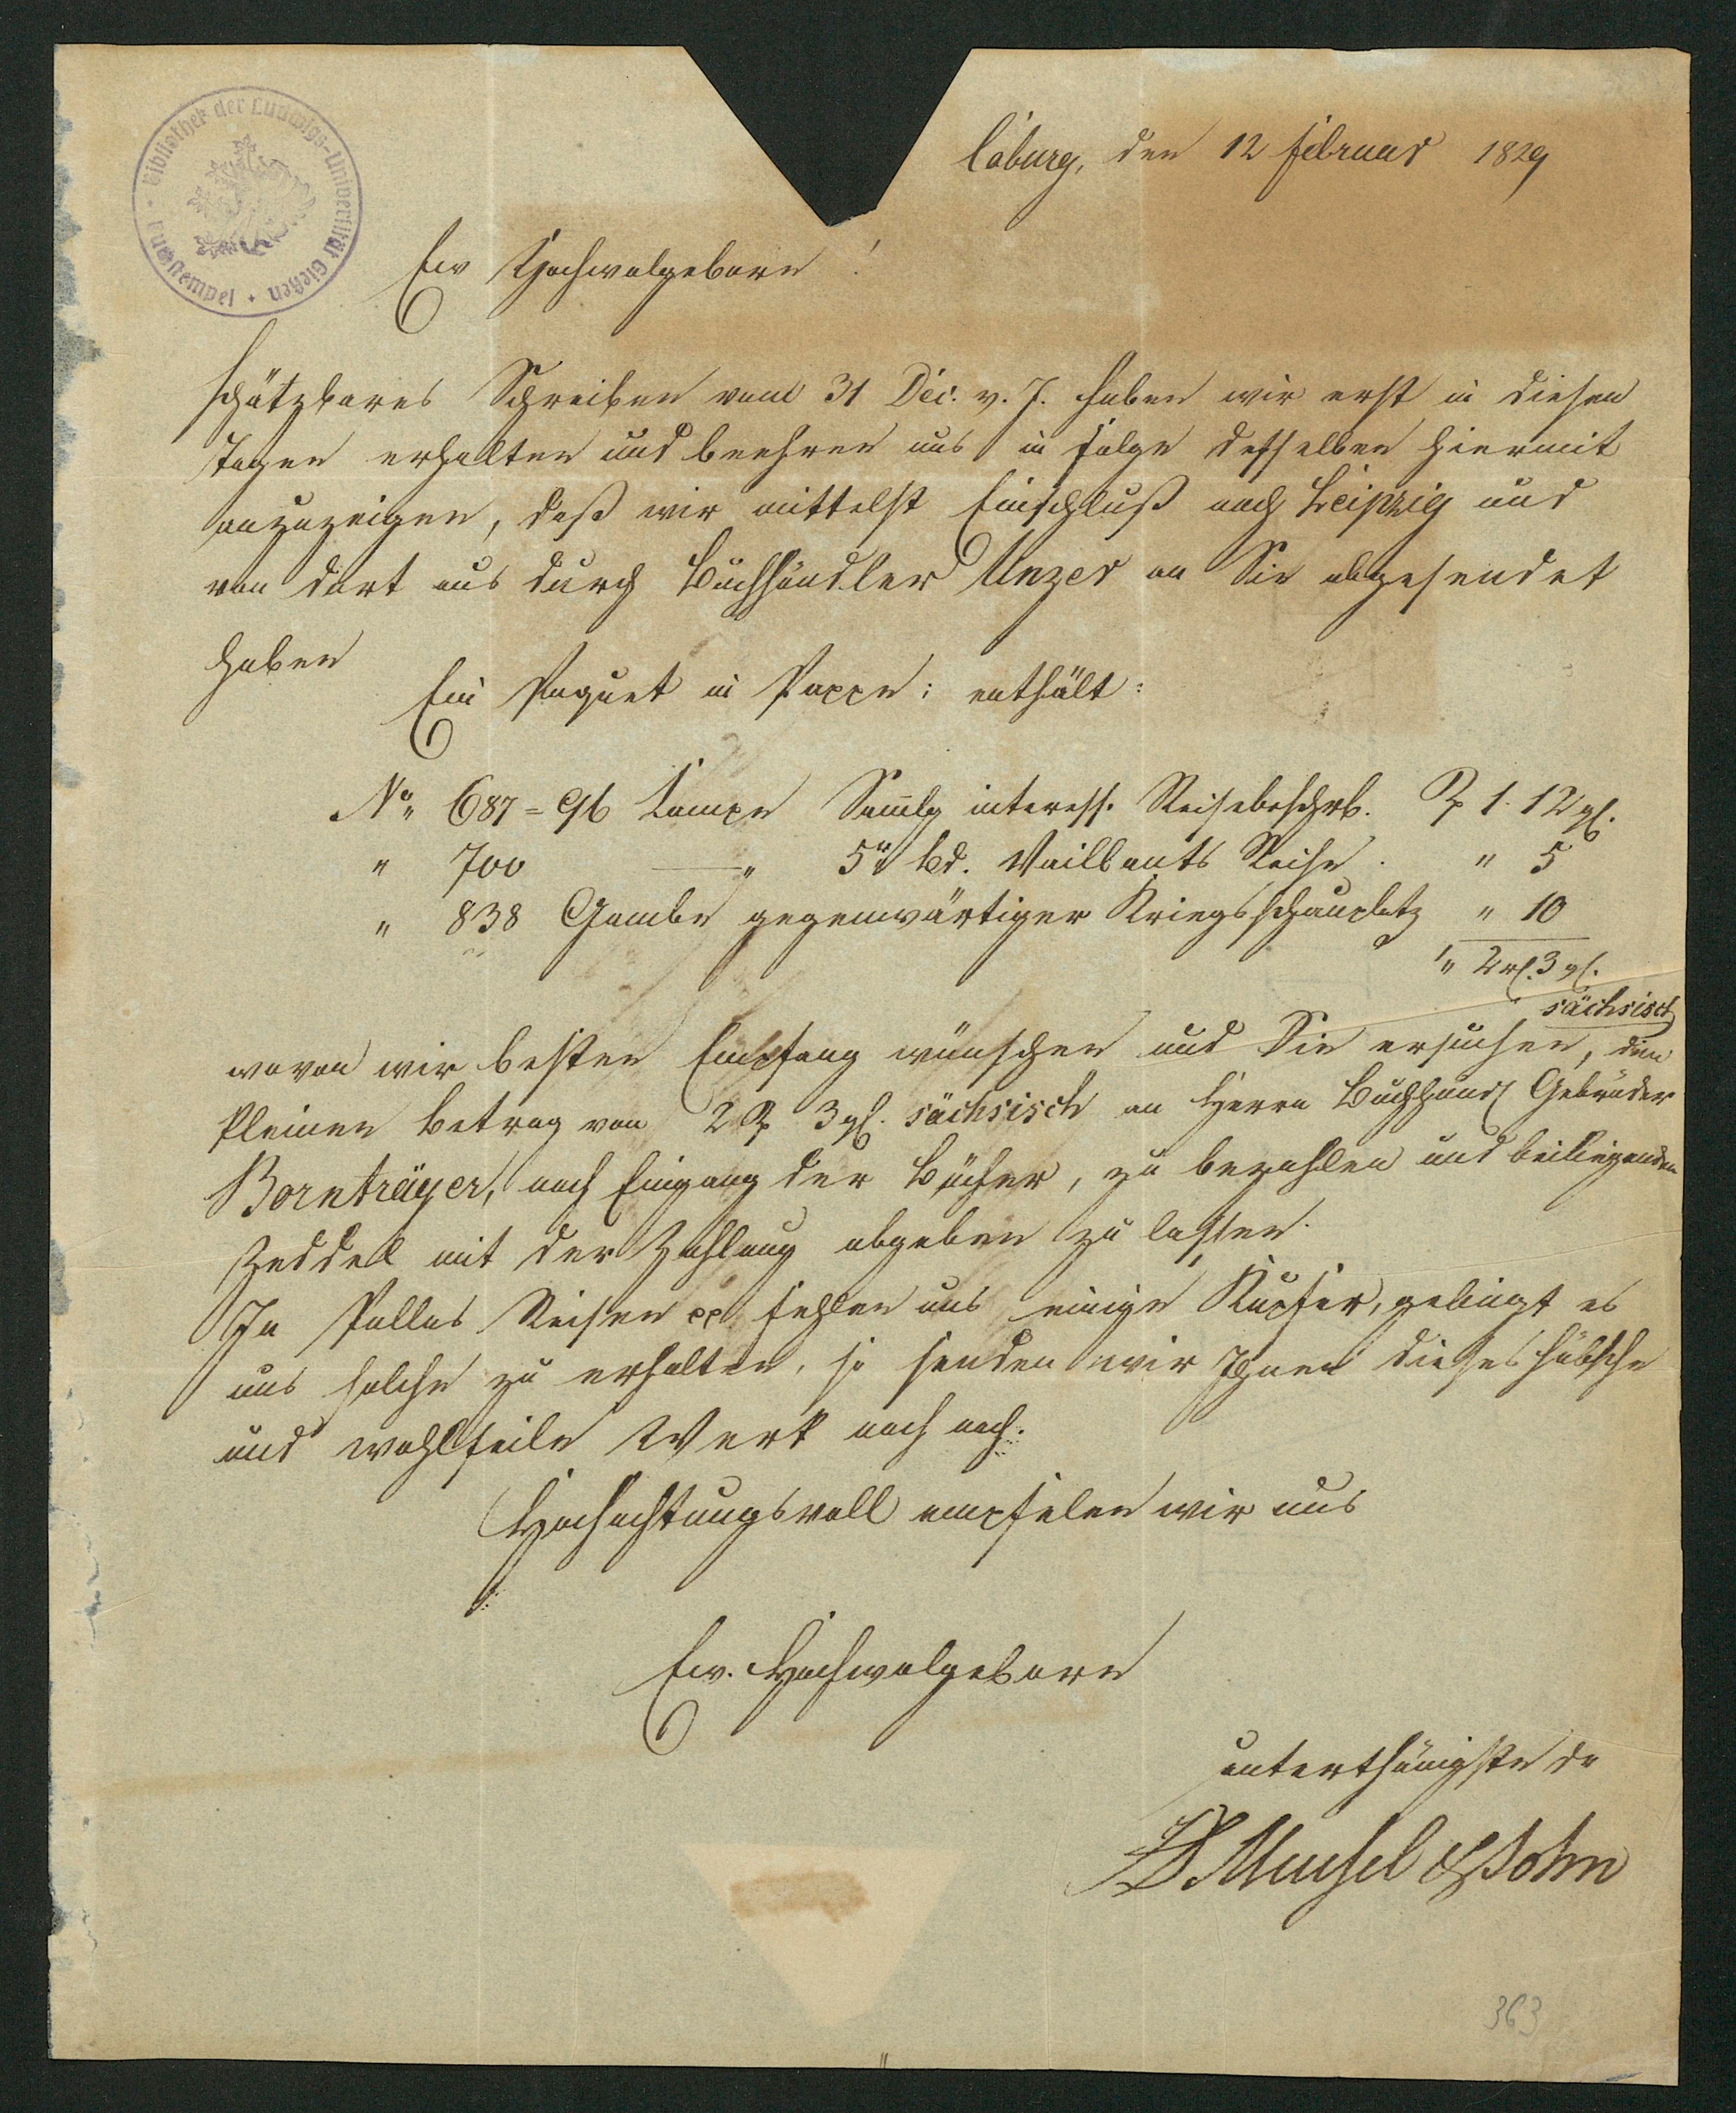 Bibliothek der Ludwigs-Universität Gießen
Coburg, den 12 Februar 1829
Ew Hochwolgeborn!
schätzbares Schreiben vom 31 Dec. v. J. haben wir erst in diesen
Tagen erhalten und beehren uns in Folge desselben hiermit
anzuzeigen, daß wir mittelst Einschluß nach Leipzig und
von dort aus durch Buchhändler Unzer an Sie abgesendet
haben
Ein Paquet in Pappe; enthält:
No. 687=96 Campe Samlg interess. Reisebeschrb. Rp 1. 12 gl.
" 700 —„ 5r Bd. Vaillants Reise. " 5
" 838 Gambe gegenwärtiger Kriegsschauplatz " 10
" 2 rl. 3 gl.
sächsisch
wovon wir besten Empfang wünschen und Sie ersuchen, den
kleinen Betrag von 2 Rp 3 gl. sächsisch an Herrn Buchhändl Gebrüder
Bornträger, nach Eingang der Bücher, zu bezahlen und beiliegenden
Zeddel mit der Zahlung abgeben zu lassen.
In Pallas Reisen pp fehlen uns einige Kupfer, gelingt es
uns solche zu erhalten, so senden wir Ihnen dieses hübsche
und wohlfeile Werk noch nach.
Hochachtungsvoll empfelen wir uns
Ew. Hochwolgeborn
unterthänigste dr
Meusel & Sohn
363